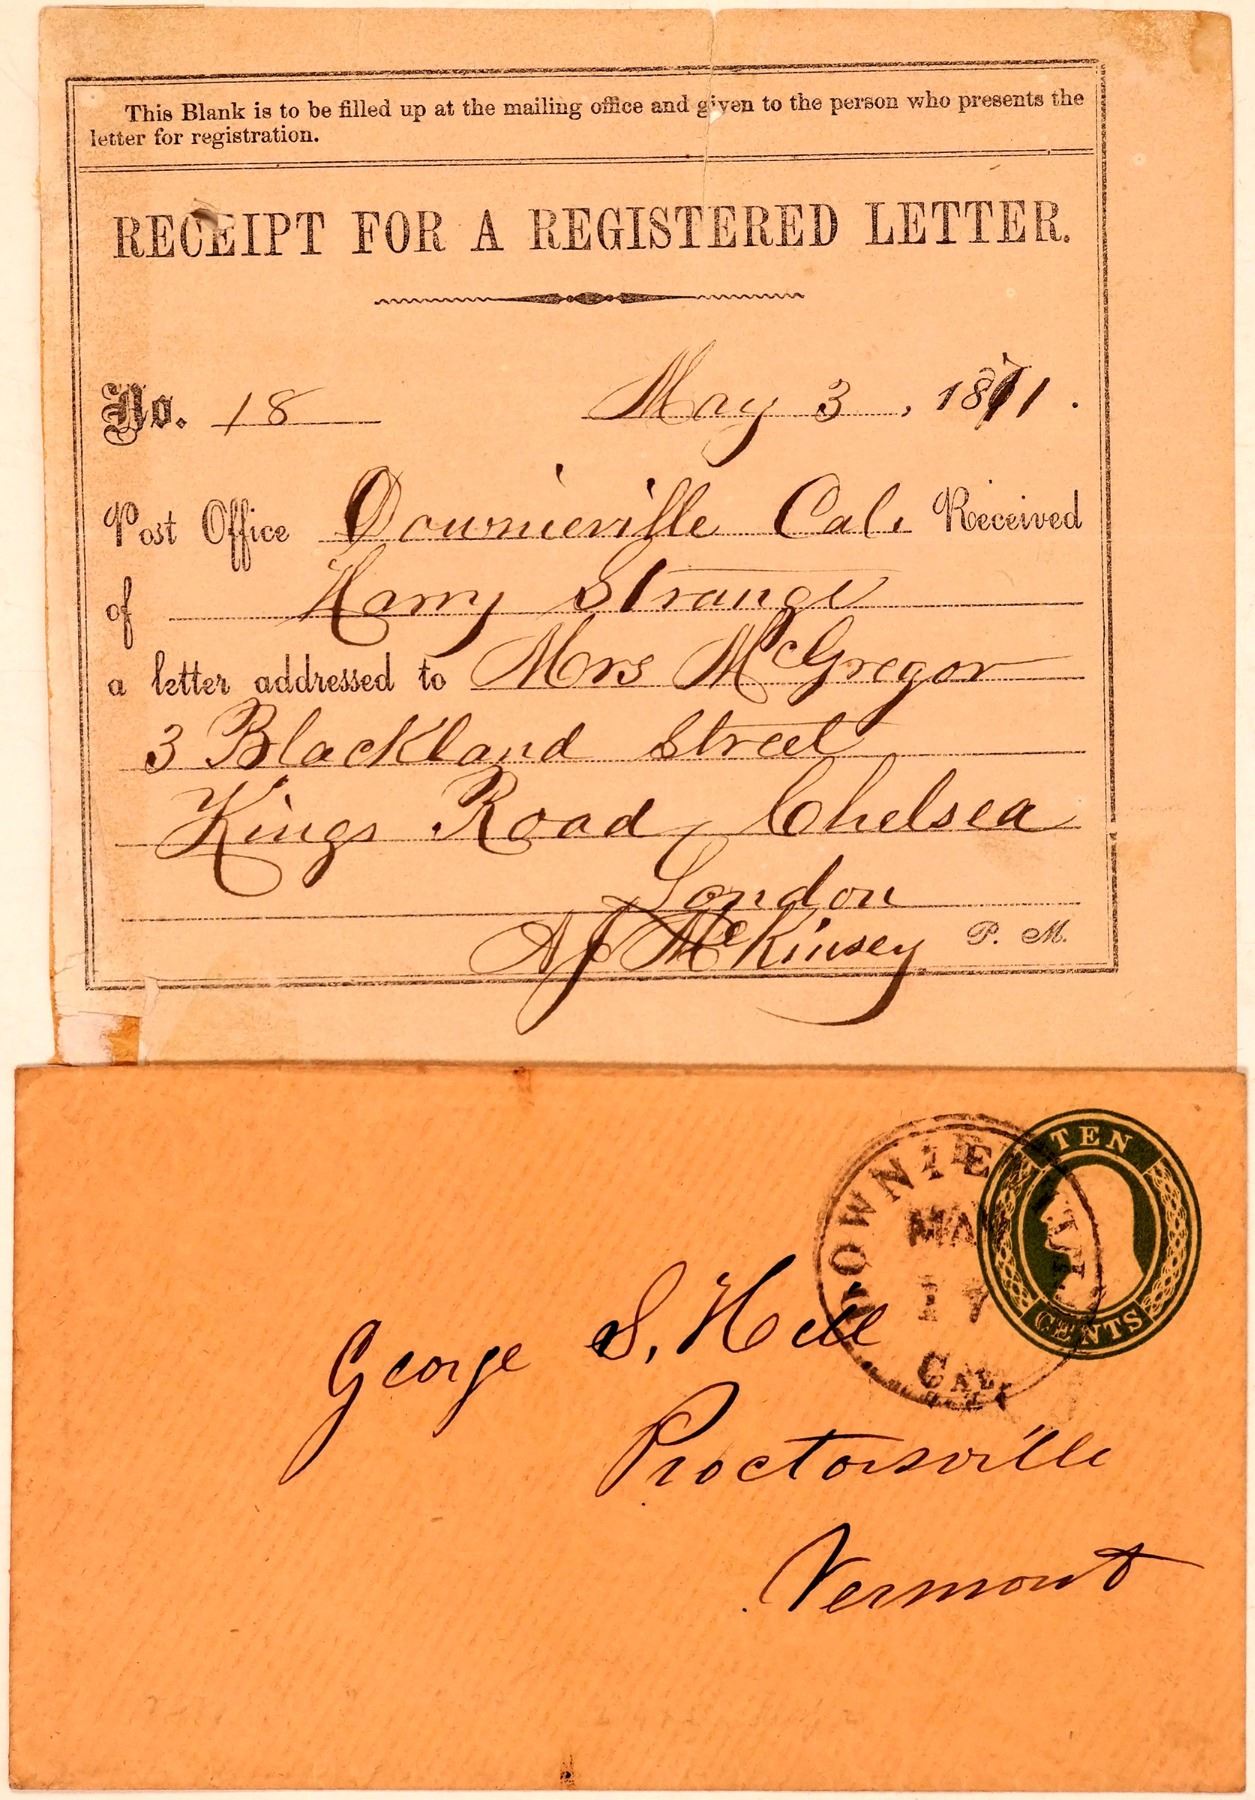 This Blank is to be filled up at the mailing office and given to the person who presents the
letter for registration.
RECEIPT FOR A REGISTERED LETTER.
No. 18 May 3, 1871.
Post Office Downieville Cal. Received
of Harry Strange
a letter addressed to Mrs McGregor
3 Blackland Street
Kings Road, Chelsea
London
AJ McKinsey P. M.
TEN
DOWNIE
MAY
17
CALI
CENTS
George S. Hill
Proctorsville
Vermont